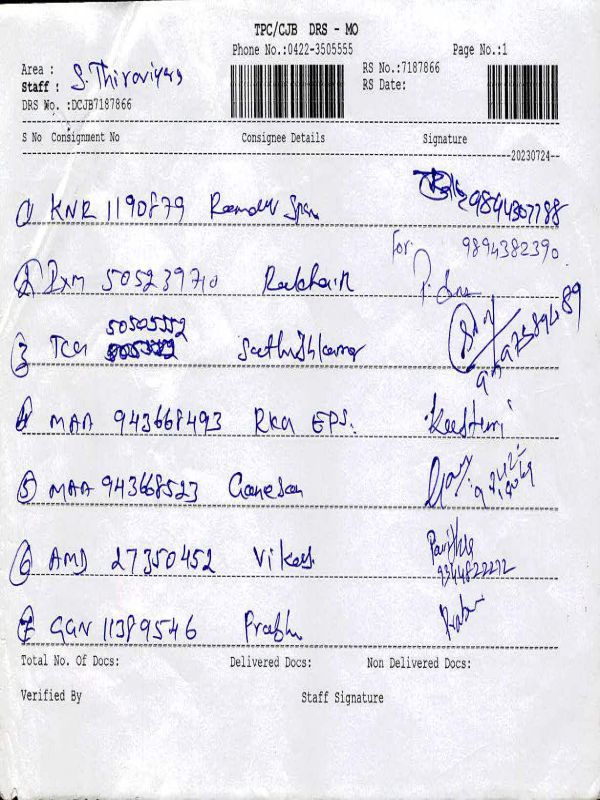 TPC/CJB DRS - MO
Phone No.:0422-3505555 Page No.:1
Area : RS No.:7187866
Staff : S. Thiraviyam RS Date:
DRS No. :DCJB7187866
S No Consignment No Consignee Details Signature
20230724
1 KNR 1190879 Ramdev 9894307788
For: 9894382390
2 505239710 Rakhaik
3 50505552 Sathishkumar
4 MAA 943668493 RKA EPS. Kasturi
5 MAA 943668523 Ganesan
6 AMD 27350452 Vikas 9344822272
7 GGN 11389546 Prabhu Prabu
Total No. Of Docs: Delivered Docs: Non Delivered Docs:
Verified By Staff Signature